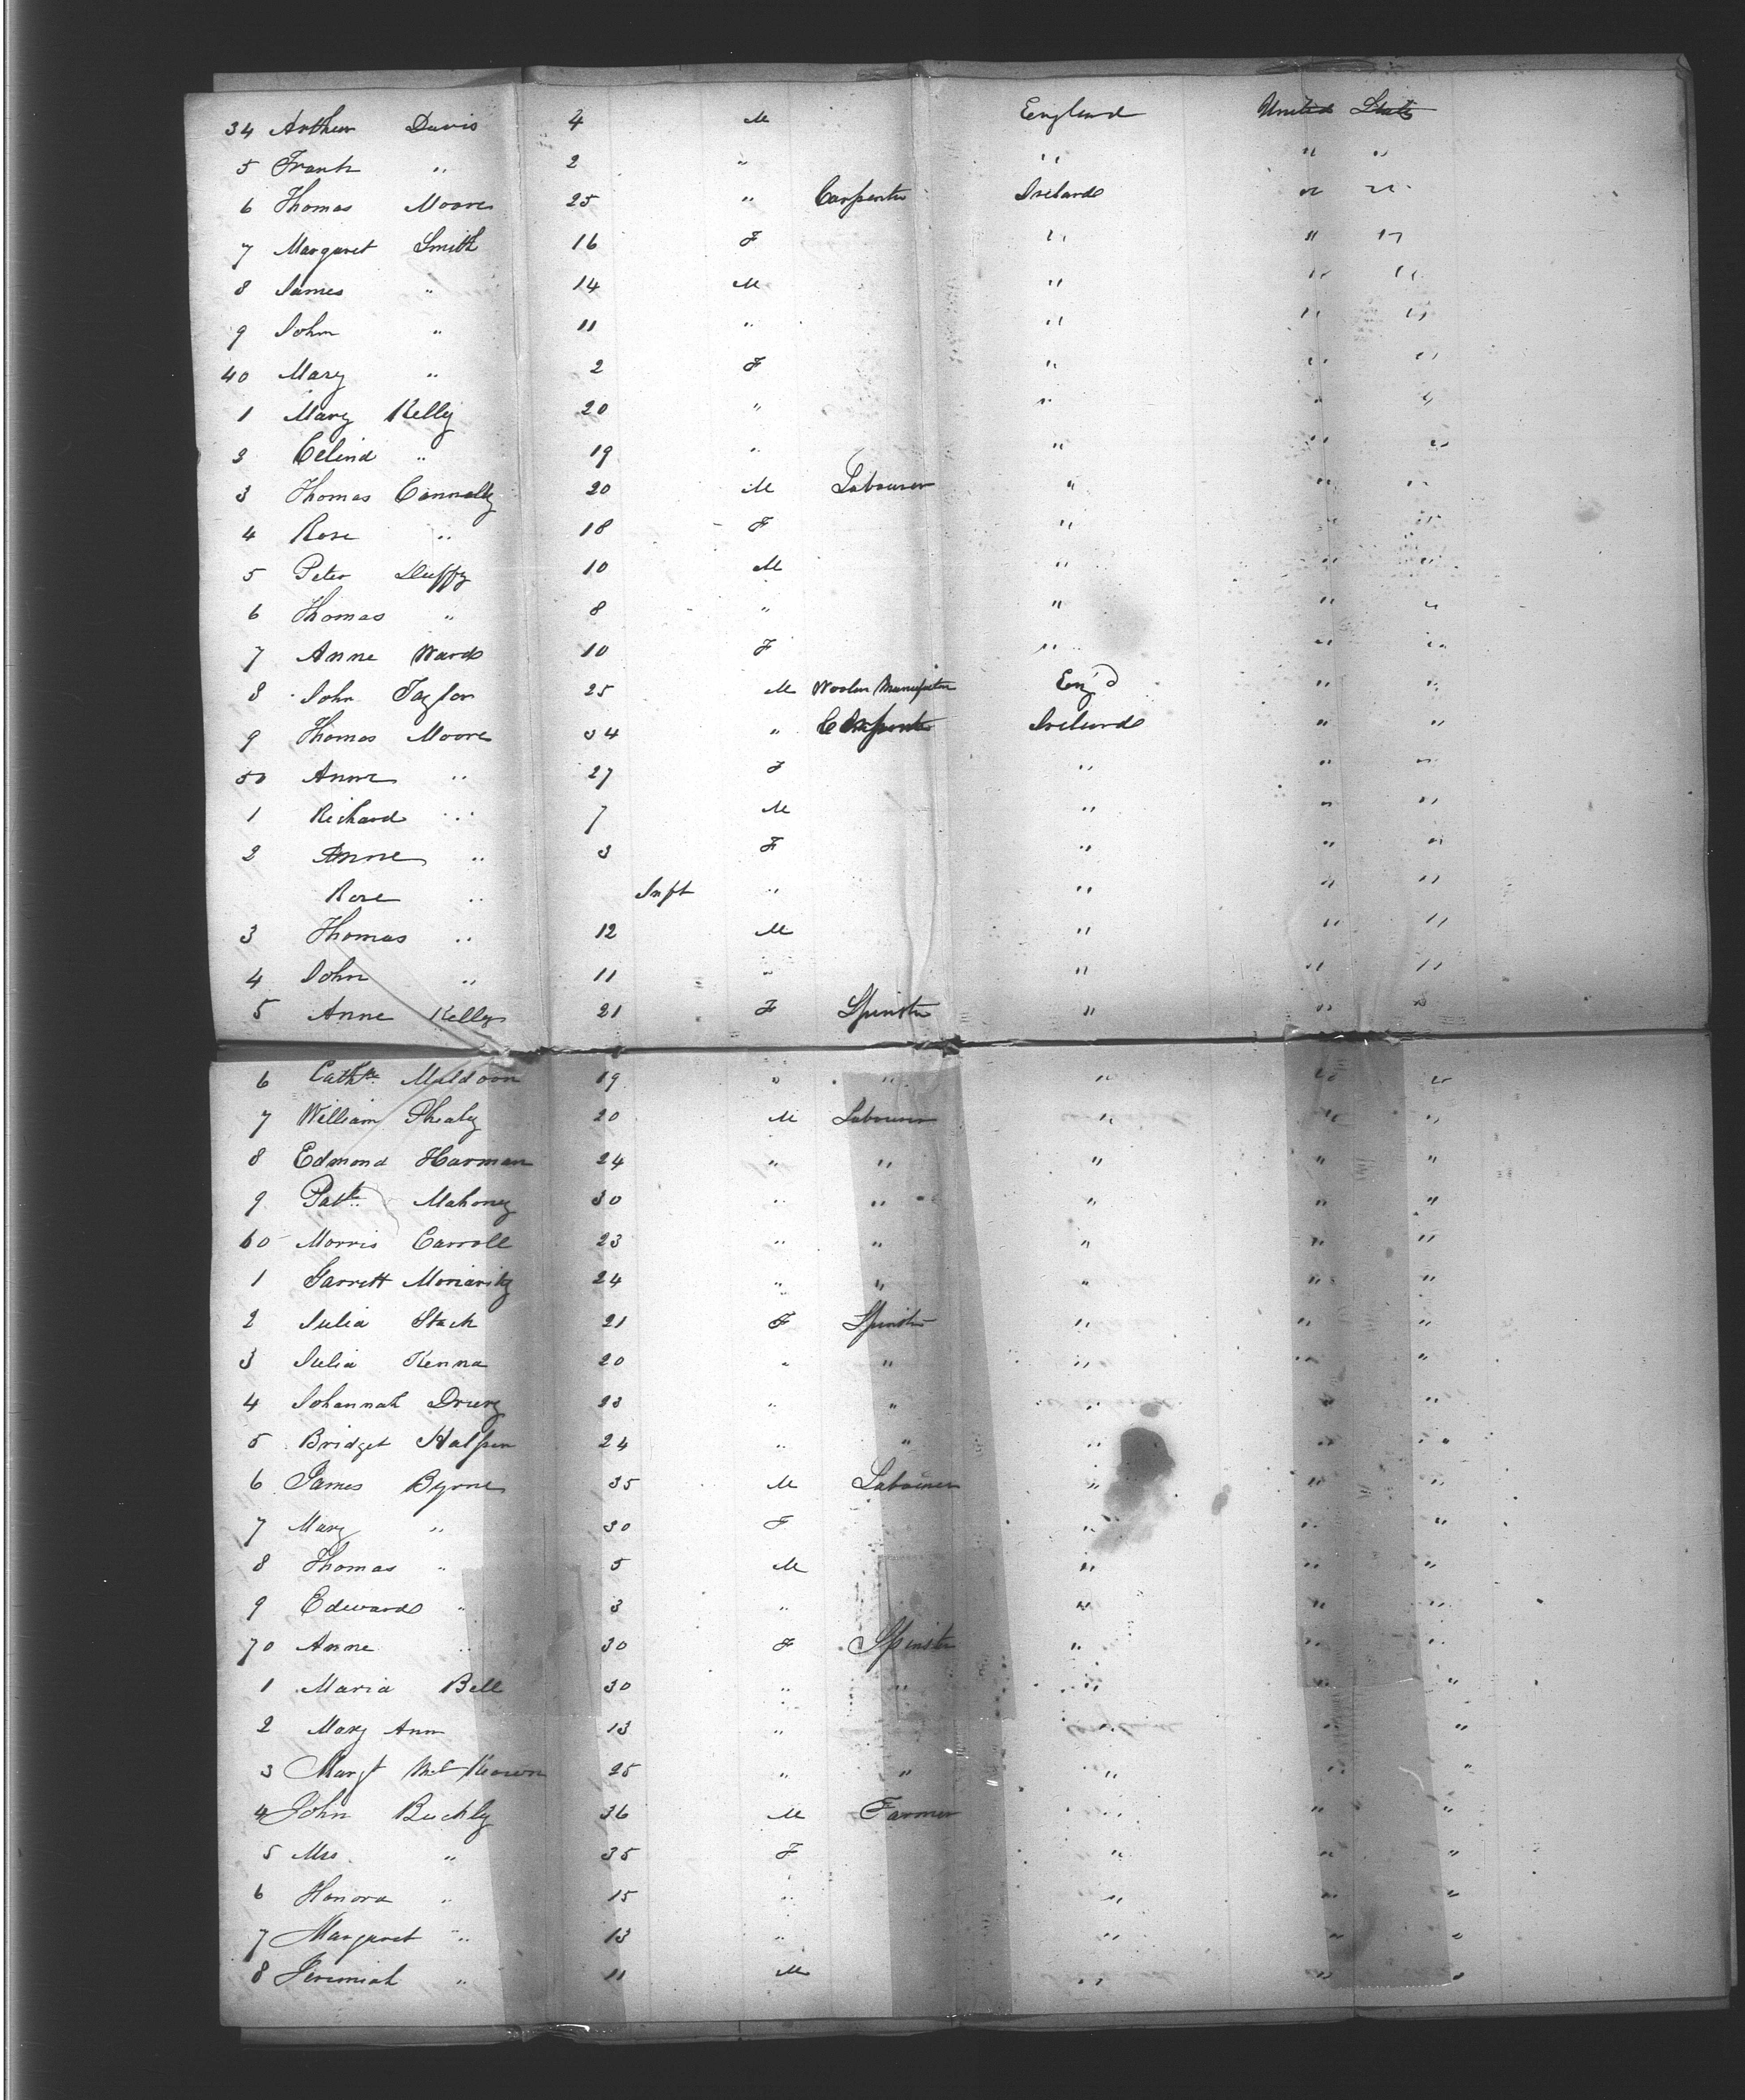 34 Arthur Davis 4 M England United States
5 Frank " 2 " " " "
6 Thomas Moore 25 " Carpenter Ireland " "
7 Margaret Smith 16 F " " "
8 James " 14 M " " "
9 John " 11 " " " "
40 Mary " 2 F " " "
1 Mary Kelly 20 " " " "
3 Celind " 19 " " " "
3 Thomas Connolly 20 M Labourer " " "
4 Rose " 18 F " " "
5 Peter Duffy 10 M " " "
6 Thomas " 8 " " " "
7 Anne Ward 10 F " " "
8 John Taylor 25 M Woolen Manufactur Eng'd " "
9 Thomas Moore 34 " Carpenter Ireland " "
50 Anne " 27 F " " "
1 Richard " 7 M " " "
2 Anne " 3 F " " "
Rose " Inft " " " "
3 Thomas " 12 M " " "
4 John " 11 " " " "
5 Anne Kelly 21 F Spinster " " "
6 Cathne Muldoon 19 " " " " "
7 William Shealy 20 M Labourer " " "
8 Edmond Harman 24 " " " " "
9 Patk Mahoney 30 " " " " "
60 Morris Carroll 23 " " " " "
1 Garrett Moriarity 24 " " " " "
2 Julia Stack 21 F Spinster " " "
3 Julia Kenna 20 " " " " "
4 Johannah Drury 23 " " " " "
5 Bridget Halpin 24 " " " " "
6 James Byrne 35 M Labourer " " "
7 Mary " 30 F " " "
8 Thomas " 5 M " " "
9 Edward " 3 " " " "
70 Anne " 30 F Spinster " " "
1 Maria Bell 30 " " " " "
2 Mary Ann 13 " " " "
3 Margt McKeown 25 " " " " "
4 John Buckly 36 M Farmer " " "
5 Mrs " 35 F " " "
6 Honora " 15 " " " "
7 Margaret " 13 " " " "
8 Jeremiah " 11 M " " "